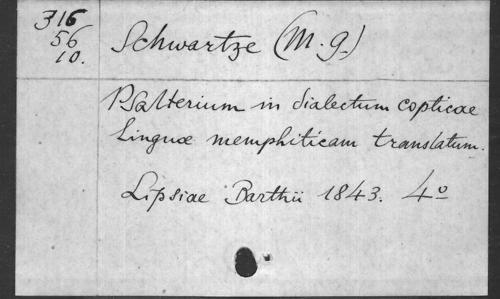 316
56
10.
Schwartze (M. G.)
Psalterium in dialectum copticae
linguae memphiticam translatum.
Lipsiae Barthii 1843. 4º